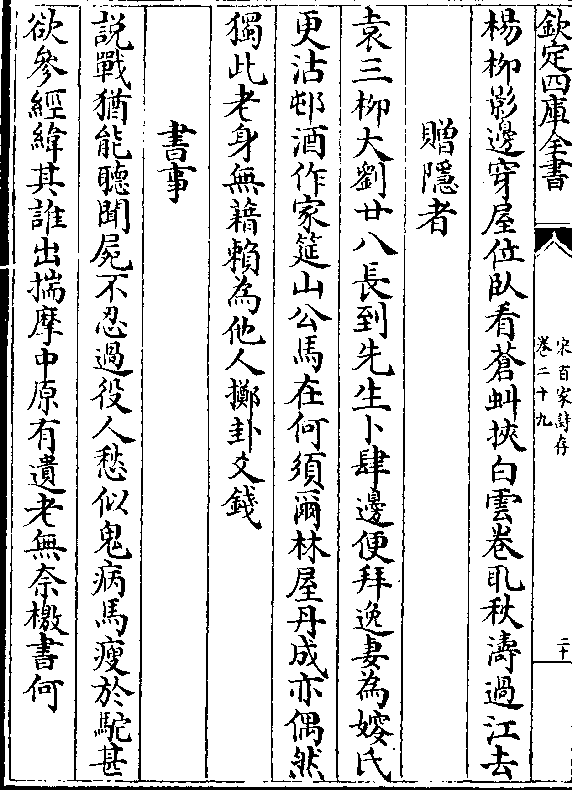 欽定四庫全書
宋百家詩存
卷二十九
二十
楊柳影邊穿屋位臥看蒼虬挾白雲卷耴秋濤過江去
贈隱者
袁三柳大劉廿八長到先生卜肆邊便拜逸妻為嫂氏
更沽邨酒作家筵山公馬在何須爾林屋丹成亦偶然
獨此老身無藉賴為他人擲卦爻錢
書事
說戰猶能聽聞屍不忍過役人愁似鬼病馬瘦於駝甚
欲參經緯其誰出揣摩中原有遺老無奈檄書何